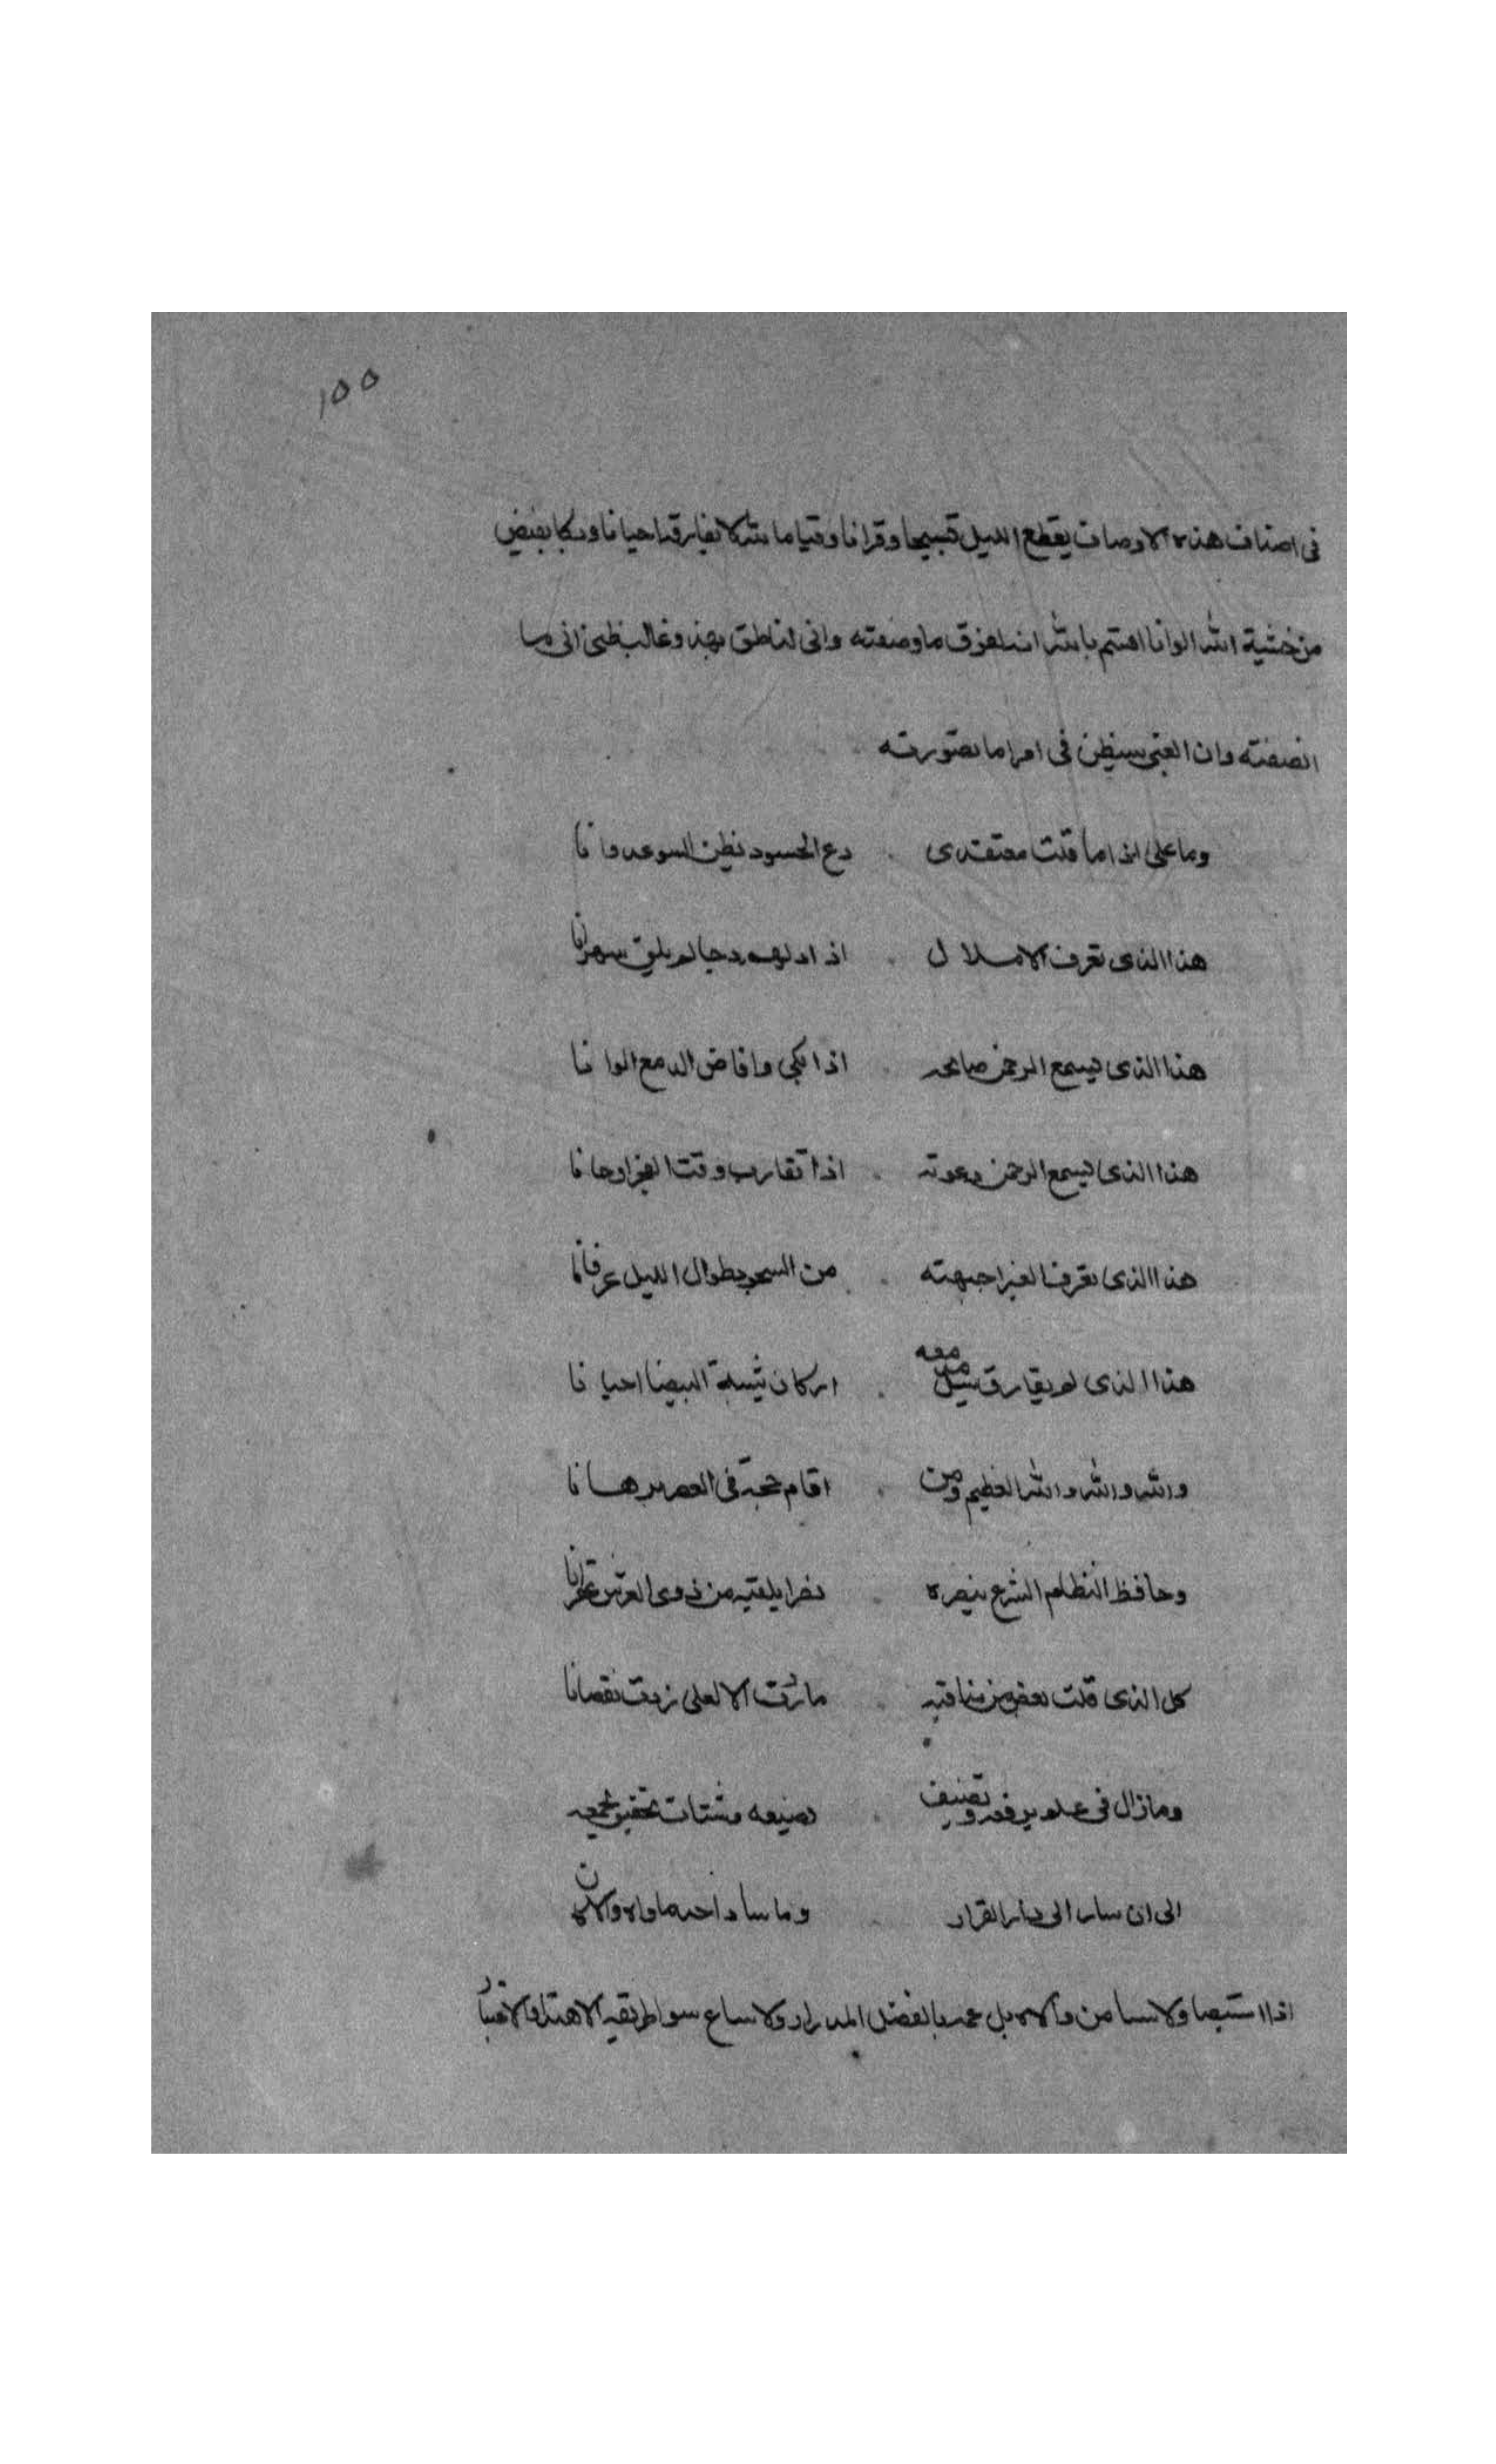 ١٥٥
فى اصناف هذه الاوصاف يقطع الليل تسبيحا وقرانا وقياما لله لا يفارقه احيانا وبكا يفيض
من خشية الله الوانا اقسم بالله انه لفوق ما وصفته وانى لناطق بهذ وغالب ظنى انى ما
انصفته وان الغبى سيظن فى امرا ما تصورته
وما على اذا ما قلت معتقدى . دع الحسود يظن السو عدوانا
هذا الذى تعرف الاملاك . اذا ادلهم دجا لم يلق سهرانا
هذا الذى يسمع الرحمن صائحه . اذا بكى وافاض الدمع الوانا
هذا الذى يسمع الرحمن دعوته . اذا تقارب وقت الفجر اوحانا
هذا الذى تعرف الغبرا جبهته . من السجود طوال الليل عرفانا
هذا الذى لم يفارق معه . اركان شيبة البيضا احيانا
والله والله والله العظيم ومن . اقام حجة فى العصر برهانا
وحافظ النظام الشرع ينصره . نصرا يلقيه من ذوى العرش
كل الذى قلت بعض من مناقبه . ما زدت الا لعلى زدت نقصانا
وما زال فى علم يرفعه وتصنيف . يضيعه وشتات تحقيق
الى ان سار الى دار القرار . وما ساد احد ماواه
اذا ولا من بل بالفضل المدرار ولا ساع سوا طريقه